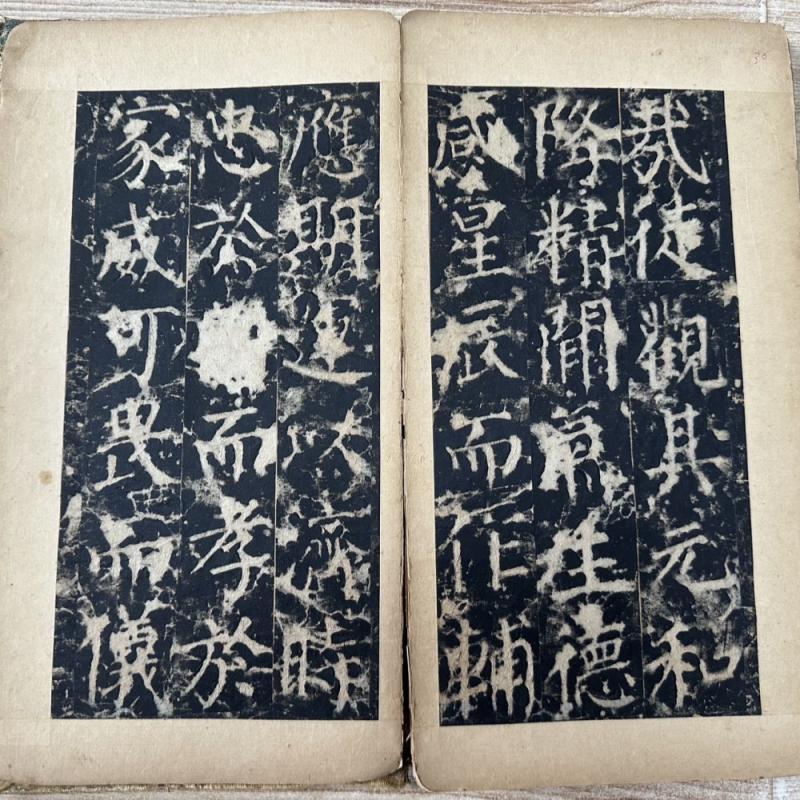 哉徒觀其元和
降精間氣生德
感星辰而作輔
應期運以濟時
忠於而孝於
家威可畏而儀